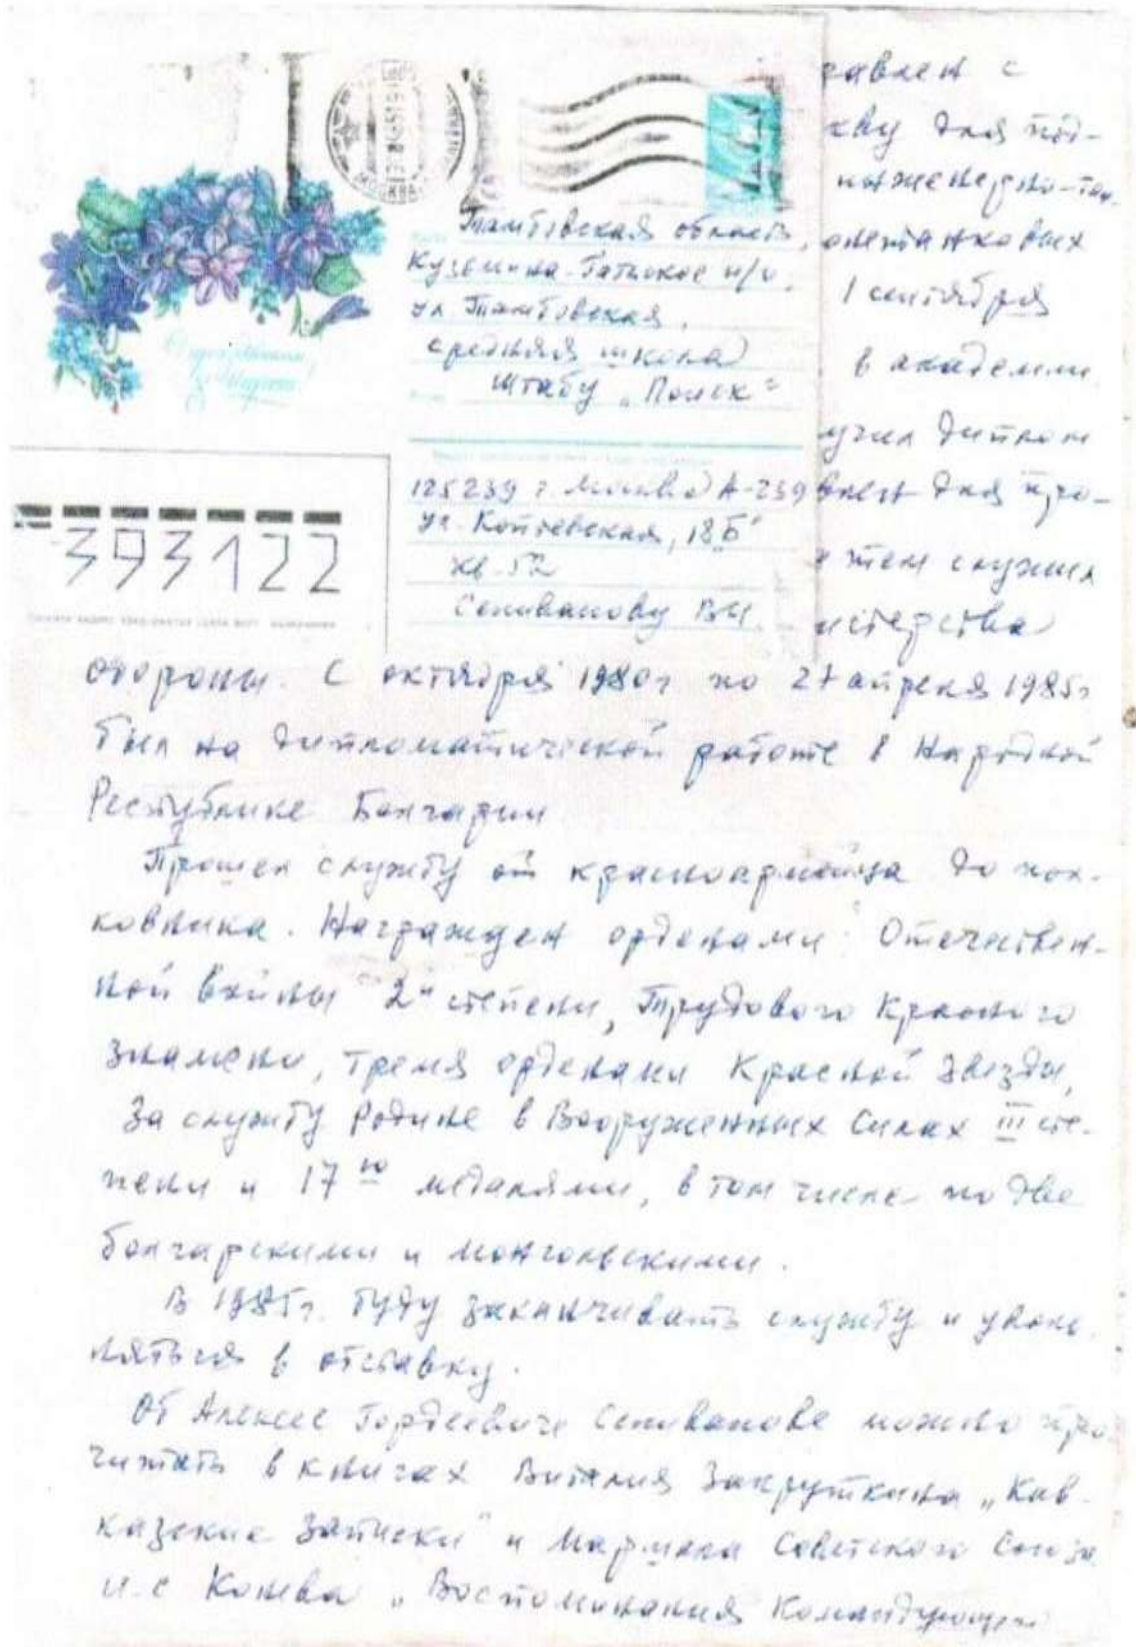 С праздником
8 Марта!
МОСКВА
Тамбовская область,
Кузьмина-Гатьское п/о,
ул Тамбовская,
средняя школа
штабу „Поиск“
125239 г. Москва А-239
ул. Коптевская, 18 "Б"
кв. 52
Селиванову В.И.
393122
равлен с
кву для под-
инженерно-тан
1 сентября
в академии
учил диплом
влен для про-
тем служил
истерства
обороны. С октября 1980г по 27 апреля 1985г
был на дипломатической работе в Народной
Республике Болгарии
Прошел службу от красноармейца до пол-
ковника. Награжден орденами: Отечествен-
ной войны 2й степени, Трудового Красного
знамени, тремя орденами Красной Звезды,
За службу Родине в Вооруженных Силах III сте-
пени и 17ю медалями, в том числе по две
болгарскими и монгольскими.
В 1985г. буду заканчивать службу и уволь
няться в отставку.
Об Алексее Гордеевиче Селиванове можно про
читать в книгах Виталия Закруткина „Кав-
казские записки“ и Маршала Советского Союза
И.С Конева „Воспоминания Командующего